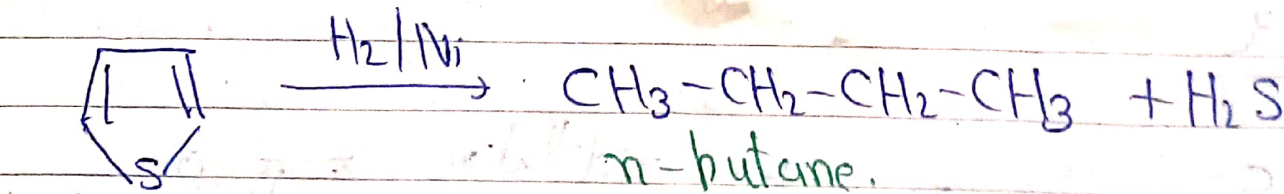 H2/Ni
S
CH3-CH2-CH2-CH3 + H2S
n-butane.